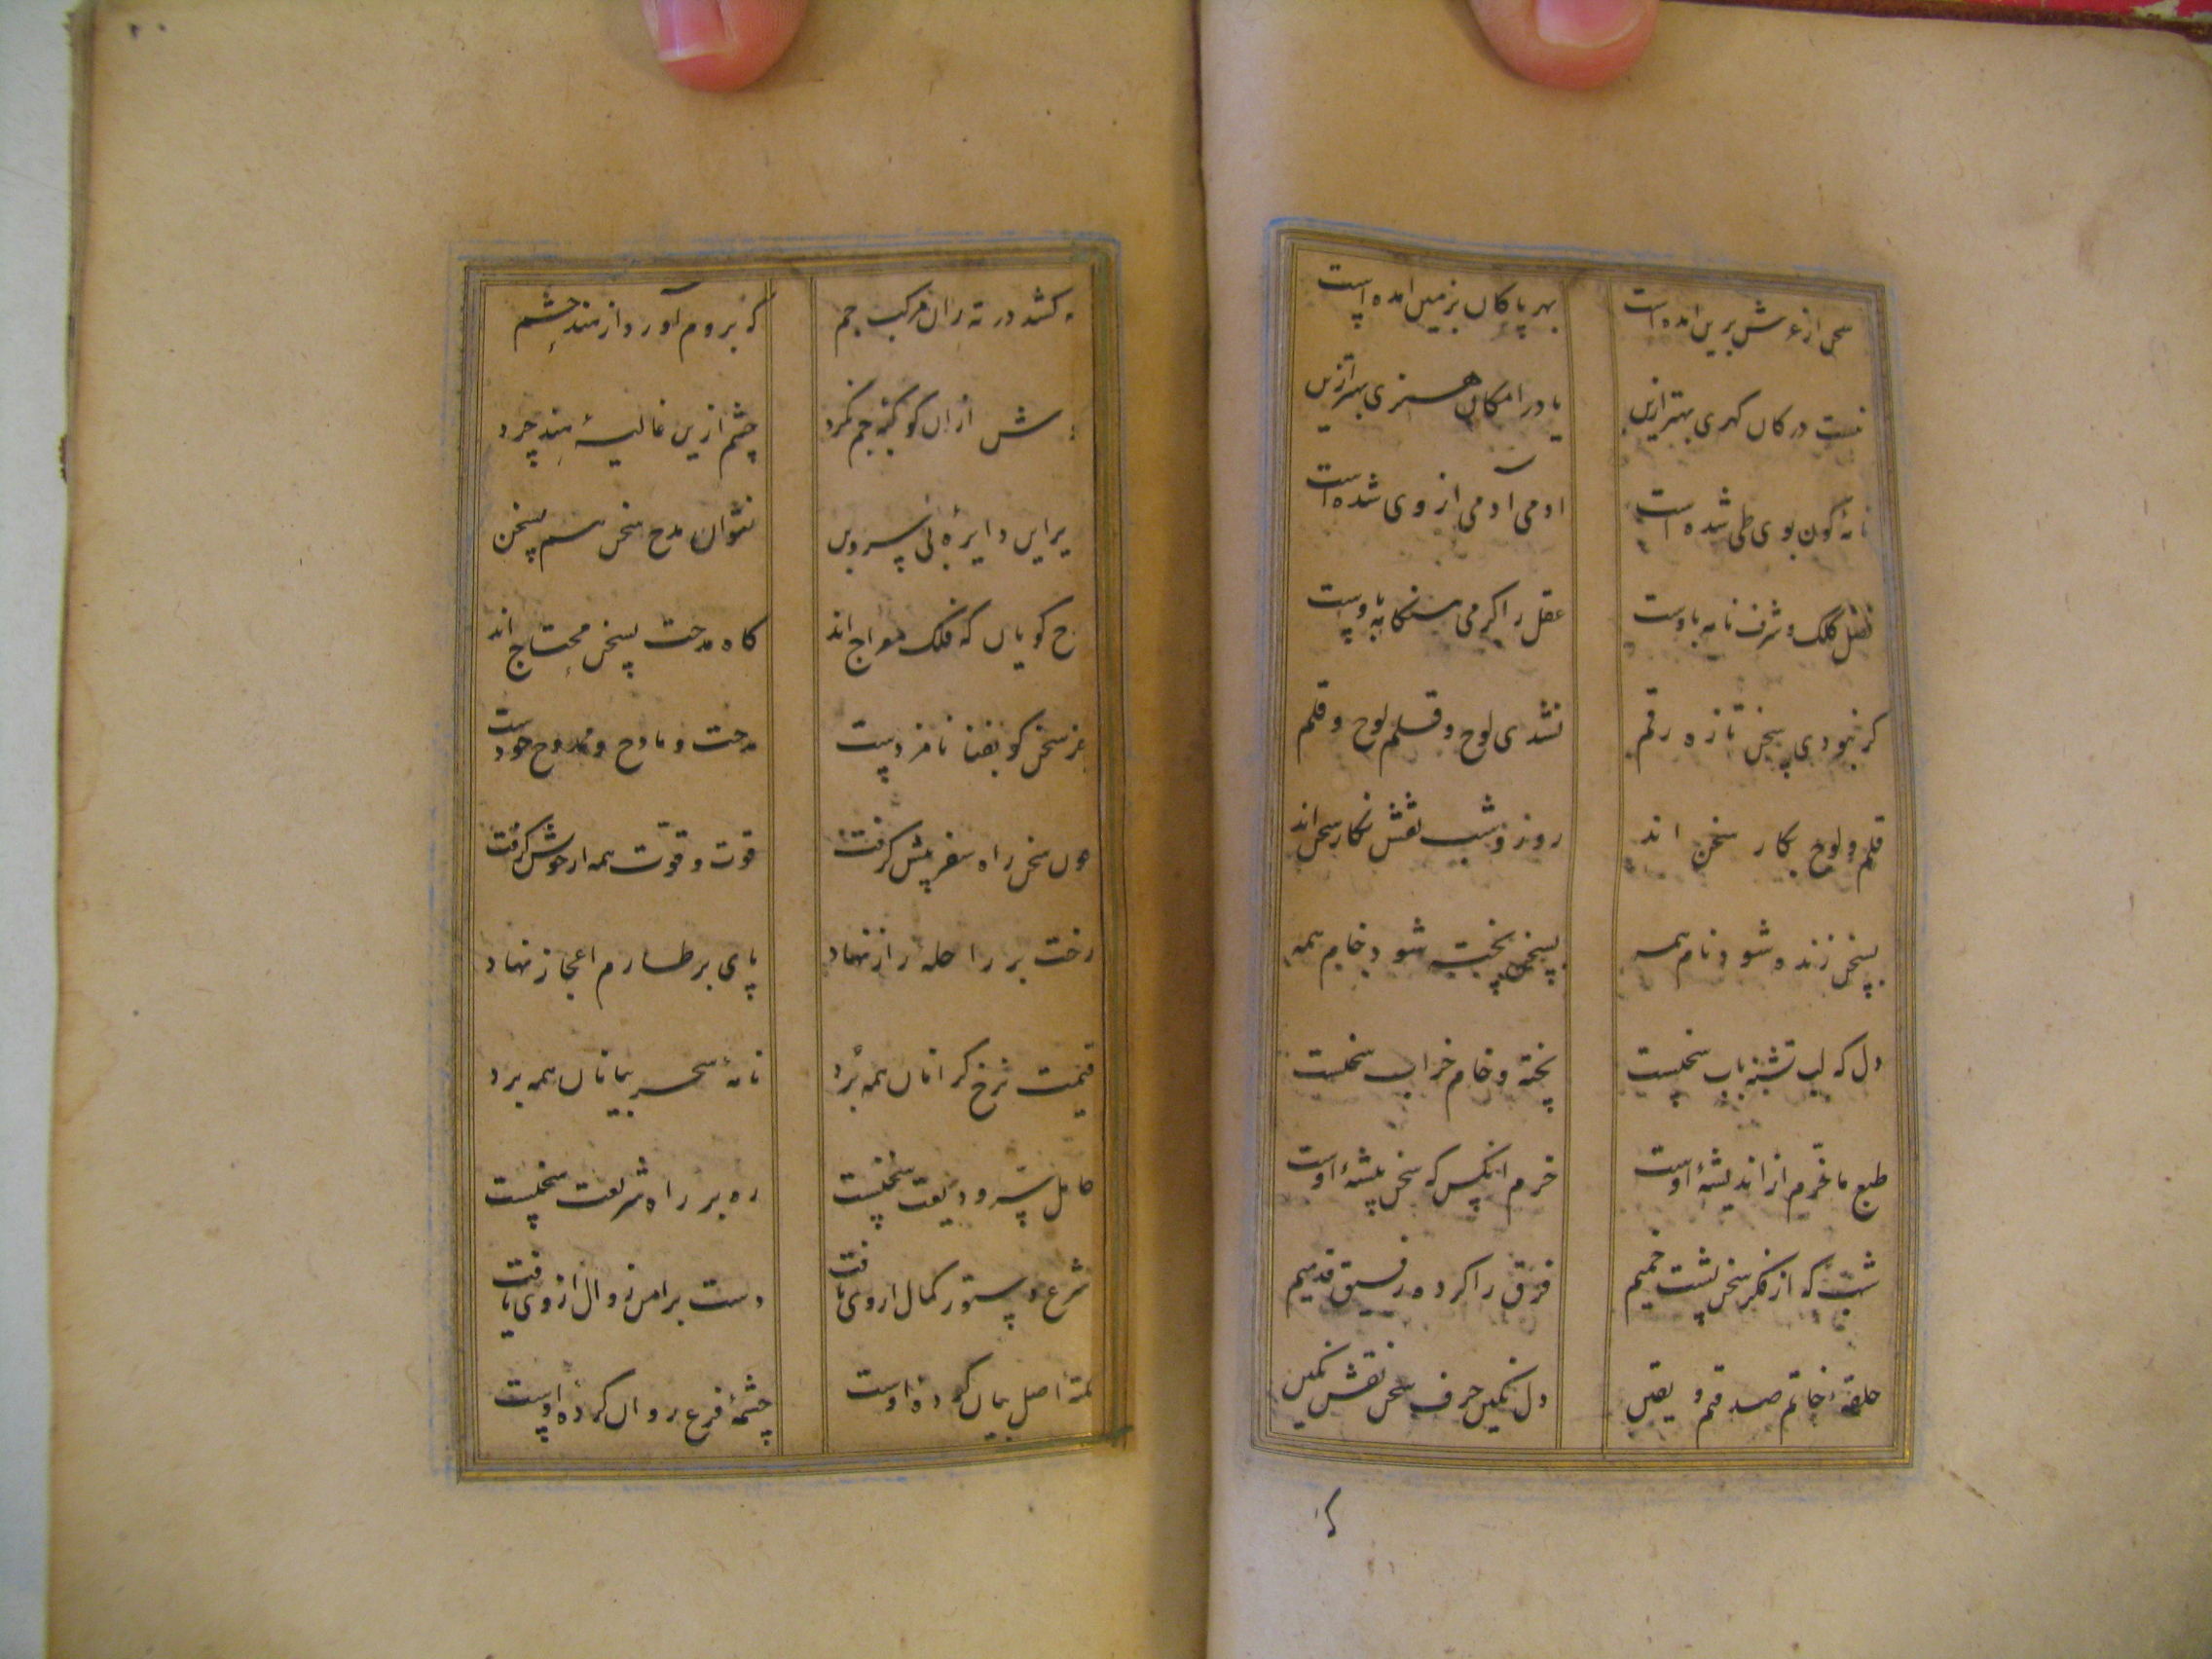 سخن از عرش برین آمده است بهر پاکان بزمین آمده است
نیست در کان گهری بهتر ازین یا در امکان هنری بهتر ازین
نامهٔ کون بوی طی شده است آدمی آدمی از وی شده است
فضل کلک و شرف نامه باوست عقل را گرمی هنگامه باوست
گر نبودی بسخن تازه رقم نشدی لوح و قلم لوح و قلم
قلم و لوح بکار سخن اند روز و شب نقش نگار سخن اند
بسخن زنده شود نام همه بسخن پخته شود خام همه
دل که لب تشنه باب سخنست پخته و خام خراب سخنست
طبع ما خرم از اندیشهٔ اوست خرم آنکس که سخن پیشهٔ اوست
شب که از فکر سخن پشت خمیم فرق را کرده رفیق قدمیم
حلقهٔ خاتم صدقیم و یقین دل نگین حرف سخن نقش نگین
کشد در ته ران مرکب جم که بروم آورد از هند حشم
از ان کوکبهٔ جم نکرد چشم ازین غالیهٔ هند چرد
این دایرهٔ بی سر و بن نتوان مدح سخن هم بسخن
گویان که فلک معراج اند گاه مدحت بسخن محتاج اند
سخن کو بقضا نامزدست مدحت و مادح و ممدوح خودست
چون سخن راه سفر پیش گرفت قوت و قوّت همه از خویش گرفت
رخت بر راحلهٔ راز نهاد پای بر طارم اعجاز نهاد
قیمت نرخ گرانان همه برد نامهٔ سحر بیانان همه برد
حامل سر ودیعت سخنست ره بر راه شریعت سخنست
شرع دستور کمال از وی یافت دست بر امن زوال از وی یافت
اصل بیان کردهٔ اوست چشمهٔ فرع روان کردهٔ اوست